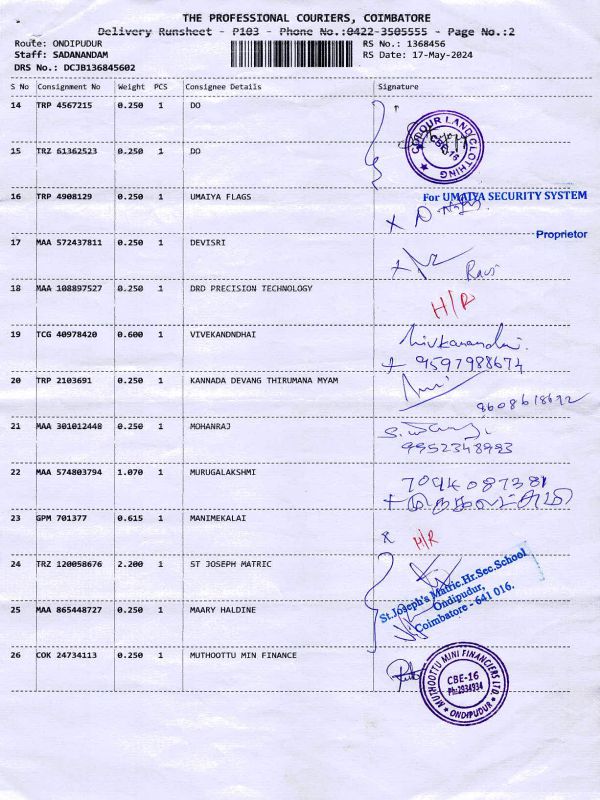 THE PROFESSIONAL COURIERS, COIMBATORE
Delivery Runsheet - P103 - Phone No.:0422-3505555 - Page No.:2
Route: ONDIPUDUR
Staff: SADANANDAM
DRS No.: DCJB136845602
RS No.: 1368456
RS Date: 17-May-2024
S No Consignment No Weight PCS Consignee Details Signature
14 TRP 4567215 0.250 1 DO
COLOUR LAND CLOTHING
CBE-16
15 TRZ 61362523 0.250 1 DO
16 TRP 4908129 0.250 1 UMAIYA FLAGS
For UMAIYA SECURITY SYSTEM
Proprietor
17 MAA 572437811 0.250 1 DEVISRI
Ravi
18 MAA 108897527 0.250 1 DRD PRECISION TECHNOLOGY
H/R
19 TCG 40978420 0.600 1 VIVEKANDNDHAI
9597988674
20 TRP 2103691 0.250 1 KANNADA DEVANG THIRUMANA MYAM
9608618692
21 MAA 301012448 0.250 1 MOHANRAJ
9952348993
22 MAA 574803794 1.070 1 MURUGALAKSHMI
7094087381
23 GPM 701377 0.615 1 MANIMEKALAI
x H/R
24 TRZ 120058676 2.200 1 ST JOSEPH MATRIC
St.Joseph's Matric.Hr.Sec.School
Ondipudur,
Coimbatore - 641 016.
25 MAA 865448727 0.250 1 MAARY HALDINE
26 COK 24734113 0.250 1 MUTHOOTTU MIN FINANCE
MUTHOOTTU MINI FINANCIERS LTD.
CBE-16
Ph:2934934
ONDIPUDUR